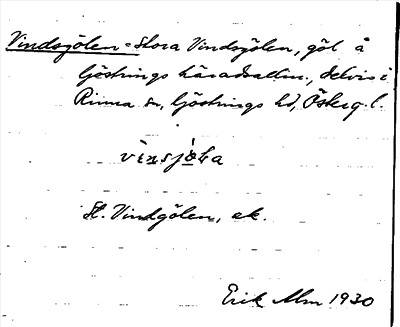 Vindsjölen = Stora Vindsjölen, göl å
Göstrings häradsallm., delvis i
Rinna sn, Göstrings hd, Österg. l.
vinsjöla
St. Vindgölen, ek.
Erik Alm 1930